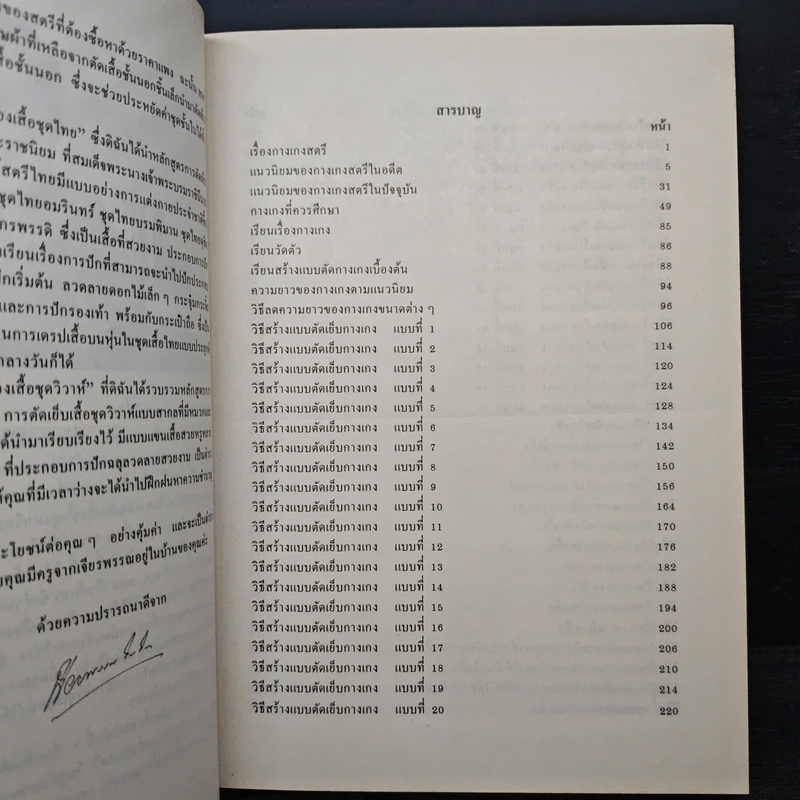 ของสตรีที่ต้องซื้อหาด้วยราคาแพง ฉะนั้น
ผ้าที่เหลือจากตัดเสื้อชั้นนอกชิ้นเล็กนำมา
สื้อชั้นนอก ซึ่งจะช่วยประหยัดค่าชุดชั้นในได้
องเสื้อชุดไทย” ซึ่งดิฉันได้นำหลักสูตรการตัด
ะราชนิยม ที่สมเด็จพระนางเจ้าพระบรมราชินี
้สตรีไทยมีแบบอย่างการแต่งกายประจำชาติ
ชุดไทยอมรินทร์ ชุดไทยบรมพิมาน ชุดไทย
กรพรรดิ ซึ่งเป็นเสื้อที่สวยงาม ประกอบการ
เรียนเรื่องการปักที่สามารถจะนำไปปักประกอบ
ักเริ่มต้น ลวดลายดอกไม้เล็ก ๆ กระจุ๋มกระจิ๋ม
และการปักรองเท้า พร้อมกับกระเป๋าถือ ซึ่ง
นการเดรปเสื้อบนหุ่นในชุดเสื้อไทยแบบประยุกต์
กลางวันก็ได้
องเสื้อชุดวิวาห์” ที่ดิฉันได้รวบรวมหลักสูตรการ
การตัดเย็บเสื้อชุดวิวาห์แบบสากลที่มีหมวกและ
ด้นำมาเรียบเรียงไว้ มีแบบแขนเสื้อสวยหรูหลาย
ที่ประกอบการปักฉลุลวดลายสวยงาม
ห้คุณที่มีเวลาว่างจะได้นำไปฝึกฝนหาความชำนาญ
ะโยชน์ต่อคุณ ๆ อย่างคุ้มค่า และจะเป็น
คุณมีครูจากเจียรพรรณอยู่ในบ้านของคุณค่ะ
ด้วยความปรารถนาดีจาก
สารบาญ
หน้า
เรื่องกางเกงสตรี 1
แนวนิยมของกางเกงสตรีในอดีต 5
แนวนิยมของกางเกงสตรีในปัจจุบัน 31
กางเกงที่ควรศึกษา 49
เรียนเรื่องกางเกง 85
เรียนวัดตัว 86
เรียนสร้างแบบตัดกางเกงเบื้องต้น 88
ความยาวของกางเกงตามแนวนิยม 94
วิธีลดความยาวของกางเกงขนาดต่าง ๆ 96
วิธีสร้างแบบตัดเย็บกางเกง แบบที่ 1 106
วิธีสร้างแบบตัดเย็บกางเกง แบบที่ 2 114
วิธีสร้างแบบตัดเย็บกางเกง แบบที่ 3 120
วิธีสร้างแบบตัดเย็บกางเกง แบบที่ 4 124
วิธีสร้างแบบตัดเย็บกางเกง แบบที่ 5 128
วิธีสร้างแบบตัดเย็บกางเกง แบบที่ 6 134
วิธีสร้างแบบตัดเย็บกางเกง แบบที่ 7 142
วิธีสร้างแบบตัดเย็บกางเกง แบบที่ 8 150
วิธีสร้างแบบตัดเย็บกางเกง แบบที่ 9 156
วิธีสร้างแบบตัดเย็บกางเกง แบบที่ 10 164
วิธีสร้างแบบตัดเย็บกางเกง แบบที่ 11 170
วิธีสร้างแบบตัดเย็บกางเกง แบบที่ 12 176
วิธีสร้างแบบตัดเย็บกางเกง แบบที่ 13 182
วิธีสร้างแบบตัดเย็บกางเกง แบบที่ 14 188
วิธีสร้างแบบตัดเย็บกางเกง แบบที่ 15 194
วิธีสร้างแบบตัดเย็บกางเกง แบบที่ 16 200
วิธีสร้างแบบตัดเย็บกางเกง แบบที่ 17 206
วิธีสร้างแบบตัดเย็บกางเกง แบบที่ 18 210
วิธีสร้างแบบตัดเย็บกางเกง แบบที่ 19 214
วิธีสร้างแบบตัดเย็บกางเกง แบบที่ 20 220